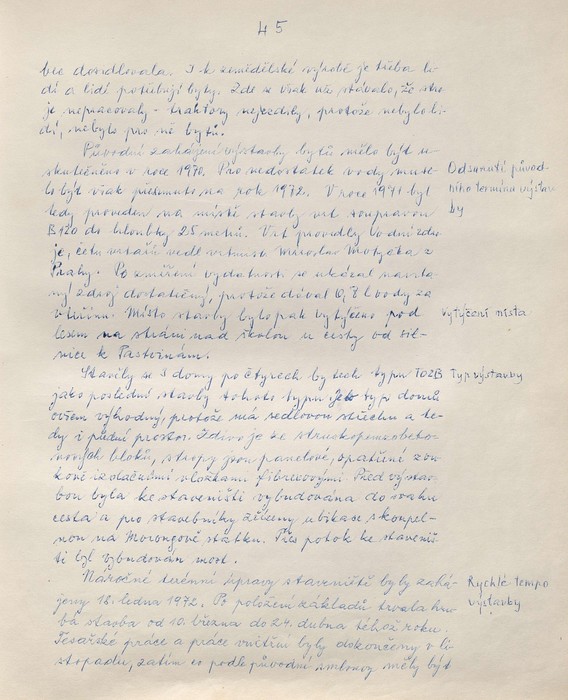 45
bec dovdlovala. I k zemědělské výrobě je třeba li-
dí a lidí potřebují byty. Zde se však nás stávalo, že stro
je nepracovaly - traktory nejezdily, protože nebylo li-
dí, nebylo pro ně bytů.
Původní zahájení výstavby bytů mělo být u-
skutečněno v roce 1970. Pro nedostatek vody muse-
lo být však přesunuto na rok 1972. V roce 1971 byl
Odsunutí původ-
ního termínu výstav
by
tedy proveden na místě stavby vrt soupravou
B120 do hloubky 25 metrů. Vrt provedly Vodní zdro
je, četu vrtařů vedl vrtmistr Miroslav Motyčka z
Prahy. Po změření vydatnosti se ukázal navrta
ný zdroj dostatečný, protože dával 0,7 l vody za
vteřinu. Místo stavby bylo pak vytyčeno pod
vytýčení místa
lesem na stráni nad školou u cesty od sil-
nice k Pastvinám.
Stavily se 3 domy po čtyřech bytech typu T02B
Typ výstavby
jako poslední stavby tohoto typu. Je to typ domů
ovšem výhodný, protože má sedlovou střechu a te-
dy i půdní prostor. Zdivo je ze struskopemzobeto-
nových bloků, stropy jsou panelové, opatřené zvu-
kově izolačními vložkami fibrexovými. Před výstav-
bou byla ke staveništi vybudována do svahu
cesta a pro stavebníky zřízeny ubikace s koupel-
nou na Morongově statku. Přes potok ke staveniš-
ti byl vybudován most.
Náročné terénní úpravy staveniště byly zahá-
Rychlé tempo
výstavby
jeny 18. ledna 1972. Po položení základů trvala hru
bá stavba od 10. března do 24. dubna téhož roku.
Tesařské práce a práce vnitřní byly dokončeny v li-
stopadu, zatím co podle původní smlouvy měly být